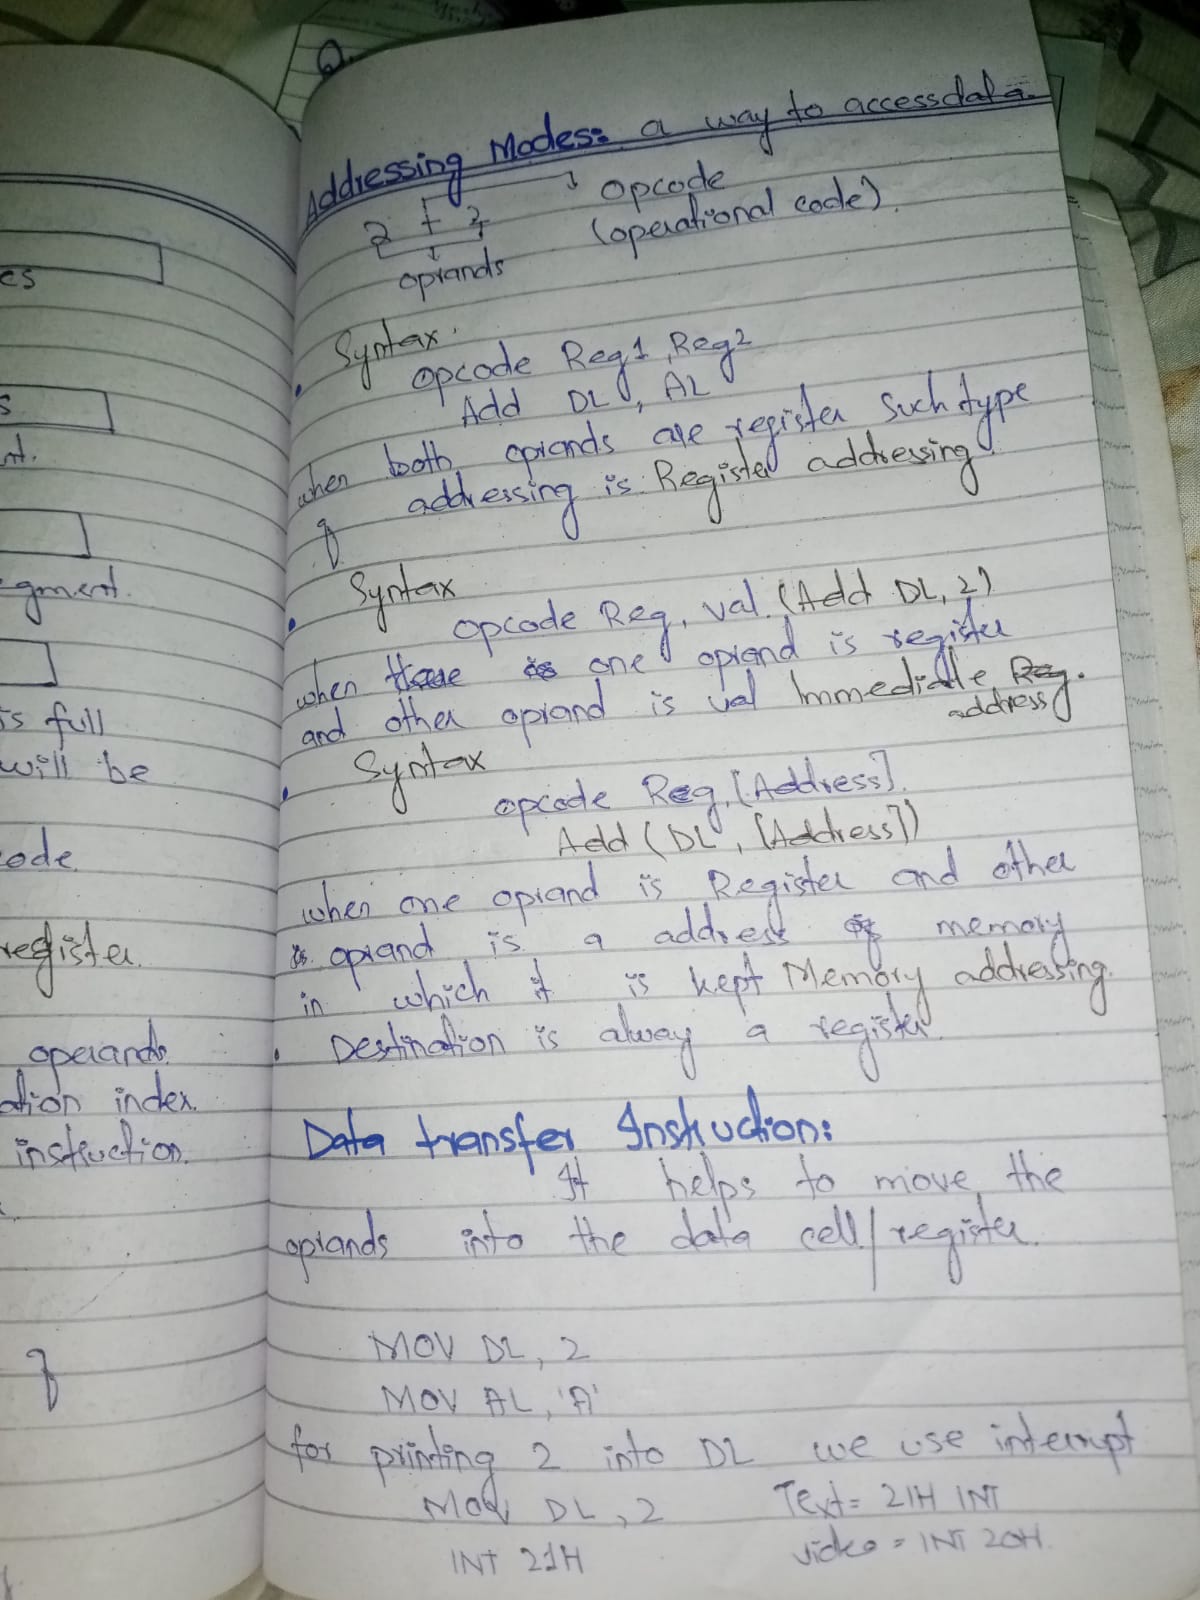 es
s
nt.
egment.
is full
will be
ode
register.
operands.
ation index.
instruction.
Addressing Modes: a way to access data.
2 + 2
Opcode
(operational code).
oprands
Syntax.
opcode Reg1, Reg2
Add DL, AL
when both oprands are register such type
addressing is Register addressing.
Syntax
opcode Reg, val. (Add DL, 2)
when there is one oprand is register
and other oprand is val Immediate Reg.
address
Syntax
opcode Reg, [Address].
Add (DL, [Address])
when one oprand is Register and other
is oprand is a address of memory
in which it is kept Memory addressing.
Destination is alway a register.
Data transfer Instruction:
It helps to move the
oprands into the data cell/register.
MOV DL, 2
MOV AL, 'A'
for printing 2 into DL we use interrupt
Mov DL, 2 Text = 21H INT
INT 21H video = INT 20H.